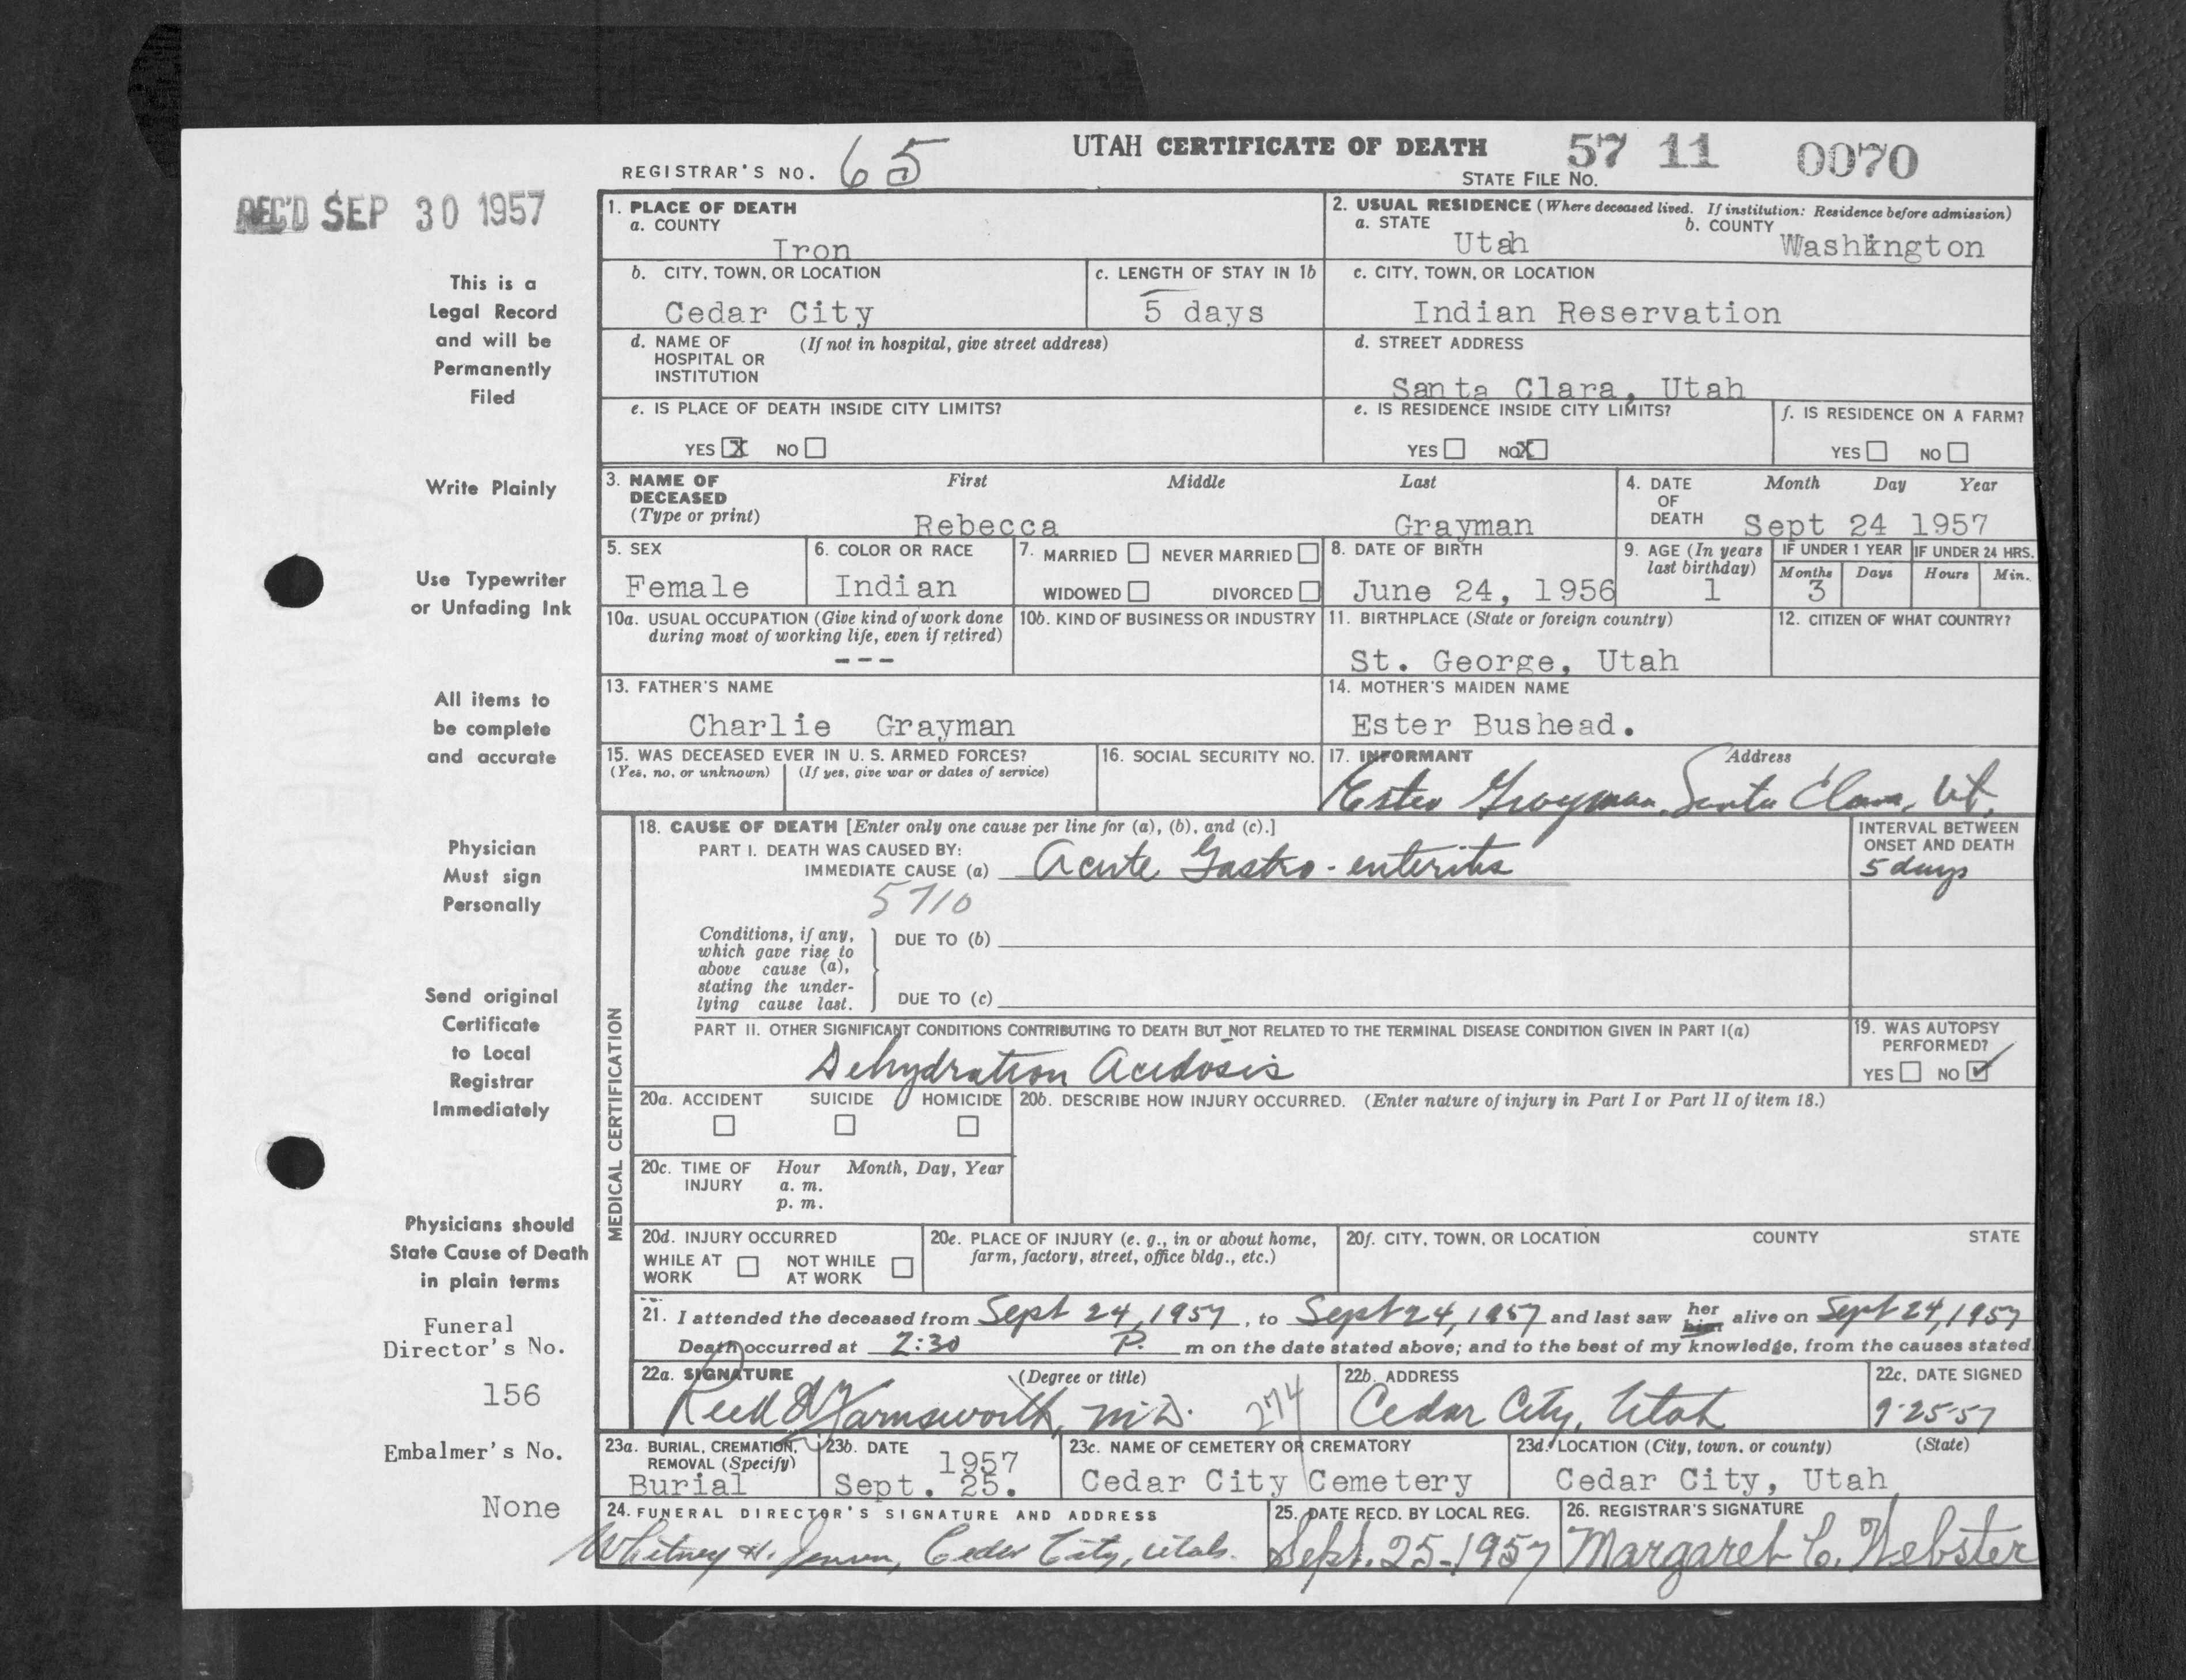 UTAH CERTIFICATE OF DEATH 57 11 0070
REGISTRAR'S NO. 65
STATE FILE NO.
REC'D SEP 30 1957
This is a
Legal Record
and will be
Permanently
Filed
Write Plainly
Use Typewriter
or Unfading Ink
All items to
be complete
and accurate
Physician
Must sign
Personally
Send original
Certificate
to Local
Registrar
Immediately
Physicians should
State Cause of Death
in plain terms
Funeral
Director's No.
156
Embalmer's No.
None
1. PLACE OF DEATH
a. COUNTY
Iron
2. USUAL RESIDENCE (Where deceased lived. If institution: Residence before admission)
a. STATE b. COUNTY
Utah Washington
b. CITY, TOWN, OR LOCATION
Cedar City
c. LENGTH OF STAY IN 1b
5 days
c. CITY, TOWN, OR LOCATION
Indian Reservation
d. NAME OF (If not in hospital, give street address)
HOSPITAL OR
INSTITUTION
d. STREET ADDRESS
Santa Clara, Utah
e. IS PLACE OF DEATH INSIDE CITY LIMITS?
YES X NO
e. IS RESIDENCE INSIDE CITY LIMITS?
YES NO X
f. IS RESIDENCE ON A FARM?
YES NO
3. NAME OF First Middle Last
DECEASED
(Type or print)
Rebecca Grayman
4. DATE Month Day Year
OF
DEATH Sept 24 1957
5. SEX
Female
6. COLOR OR RACE
Indian
7. MARRIED NEVER MARRIED
WIDOWED DIVORCED
8. DATE OF BIRTH
June 24, 1956
9. AGE (In years
last birthday)
1
IF UNDER 1 YEAR IF UNDER 24 HRS.
Months Days Hours Min.
3
10a. USUAL OCCUPATION (Give kind of work done
during most of working life, even if retired)
---
10b. KIND OF BUSINESS OR INDUSTRY
11. BIRTHPLACE (State or foreign country)
St. George, Utah
12. CITIZEN OF WHAT COUNTRY?
13. FATHER'S NAME
Charlie Grayman
14. MOTHER'S MAIDEN NAME
Ester Bushead.
15. WAS DECEASED EVER IN U. S. ARMED FORCES?
(Yes, no, or unknown) (If yes, give war or dates of service)
16. SOCIAL SECURITY NO.
17. INFORMANT Address
Ester Grayman, Santa Clara, Ut.
MEDICAL CERTIFICATION
18. CAUSE OF DEATH [Enter only one cause per line for (a), (b), and (c).]
PART I. DEATH WAS CAUSED BY:
IMMEDIATE CAUSE (a) Acute Gastro-enteritis
5710
INTERVAL BETWEEN
ONSET AND DEATH
5 days
Conditions, if any,
which gave rise to
above cause (a),
stating the under-
lying cause last.
DUE TO (b)
DUE TO (c)
PART II. OTHER SIGNIFICANT CONDITIONS CONTRIBUTING TO DEATH BUT NOT RELATED TO THE TERMINAL DISEASE CONDITION GIVEN IN PART I(a)
Dehydration Acidosis
19. WAS AUTOPSY
PERFORMED?
YES NO ✓
20a. ACCIDENT SUICIDE HOMICIDE
20b. DESCRIBE HOW INJURY OCCURRED. (Enter nature of injury in Part I or Part II of item 18.)
20c. TIME OF Hour Month, Day, Year
INJURY a. m.
p. m.
20d. INJURY OCCURRED
WHILE AT NOT WHILE
WORK AT WORK
20e. PLACE OF INJURY (e. g., in or about home,
farm, factory, street, office bldg., etc.)
20f. CITY, TOWN, OR LOCATION COUNTY STATE
21. I attended the deceased from Sept 24, 1957, to Sept 24, 1957 and last saw her him alive on Sept 24, 1957
Death occurred at 2:30 P. m on the date stated above; and to the best of my knowledge, from the causes stated.
22a. SIGNATURE (Degree or title)
Reed Farnsworth, M.D. 274
22b. ADDRESS
Cedar City, Utah
22c. DATE SIGNED
9-25-57
23a. BURIAL, CREMATION,
REMOVAL (Specify)
Burial
23b. DATE
1957
Sept. 25.
23c. NAME OF CEMETERY OR CREMATORY
Cedar City Cemetery
23d. LOCATION (City, town, or county) (State)
Cedar City, Utah
24. FUNERAL DIRECTOR'S SIGNATURE AND ADDRESS
Whitney H. Jensen, Cedar City, Utah.
25. DATE RECD. BY LOCAL REG.
Sept. 25-1957
26. REGISTRAR'S SIGNATURE
Margaret C. Webster